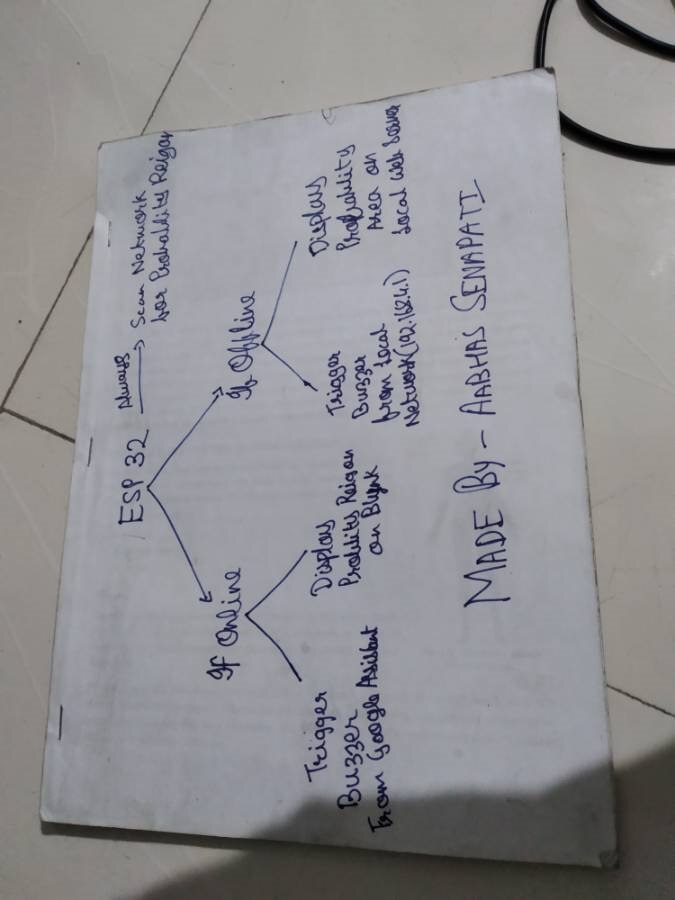 ESP 32 Always Scan Network
for Probability Reigon
If Online
If Offline
Trigger
Buzzer
From Google Assistant
Display
Problity Reigon
on Blynk
Trigger
Buzzer
from Local
Network (192.168.4.1)
Display
Probability
Area on
Local Web Server
MADE By - AABHAS SENAPATI